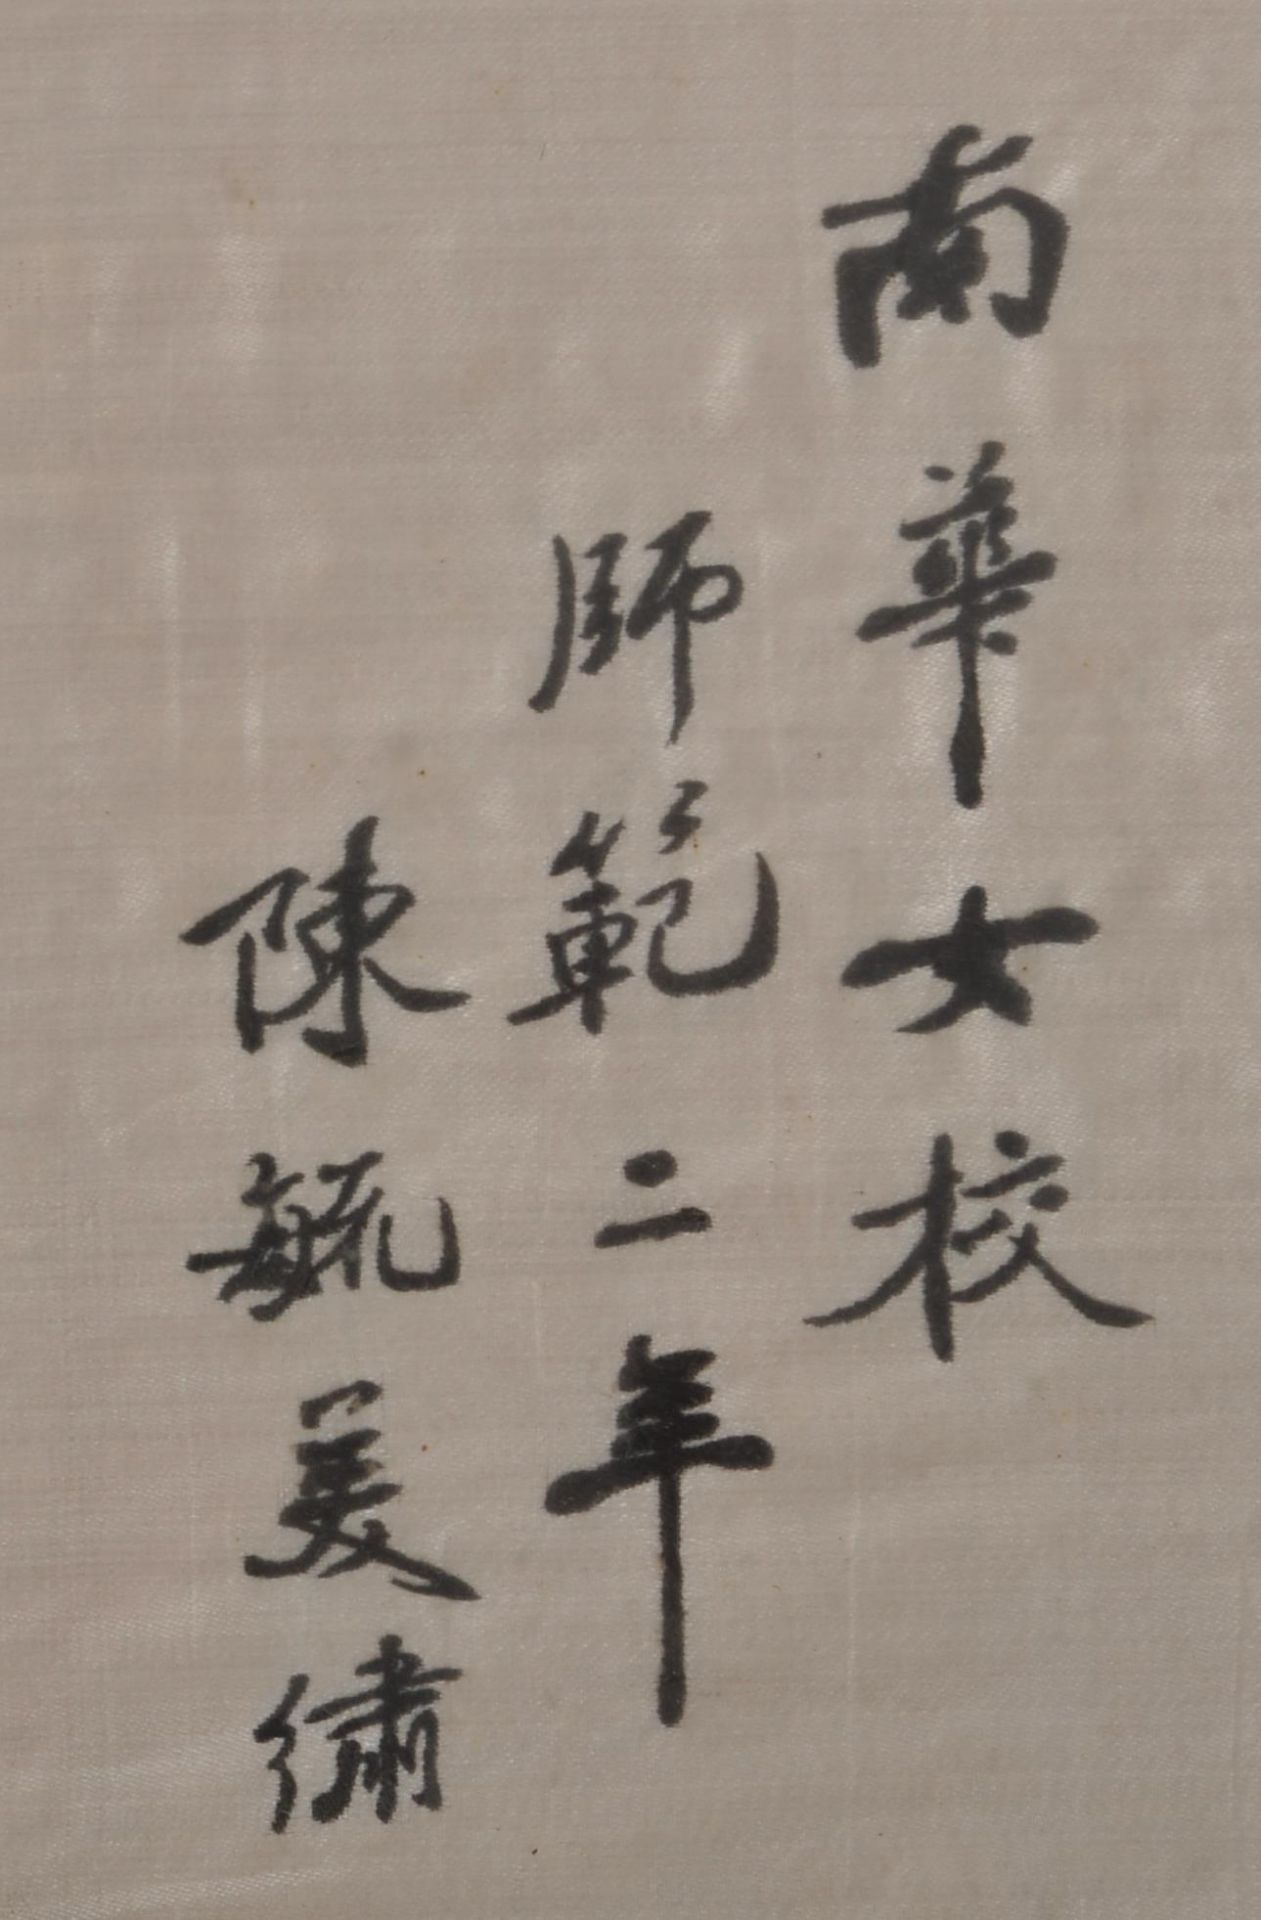 南華女校
師範二年
陳毓美繡